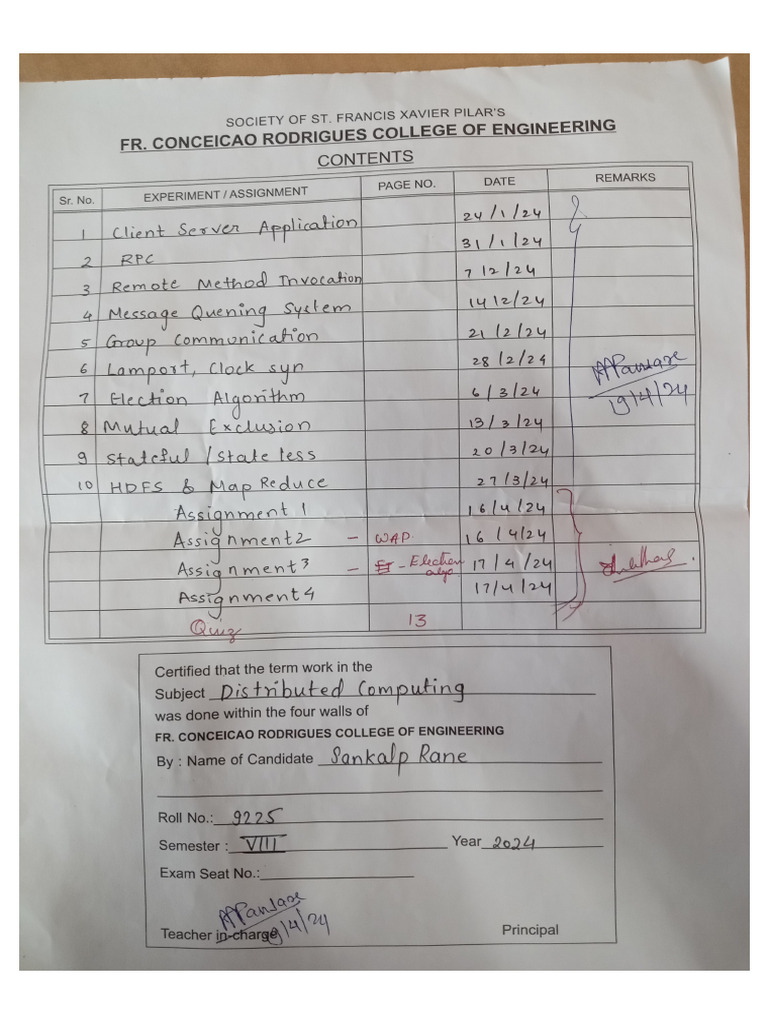 SOCIETY OF ST. FRANCIS XAVIER PILAR'S
FR. CONCEICAO RODRIGUES COLLEGE OF ENGINEERING
CONTENTS
Sr. No. EXPERIMENT / ASSIGNMENT PAGE NO. DATE REMARKS
1 Client Server Application 24/1/24
2 RPC 31/1/24
3 Remote Method Invocation 7/2/24
4 Message Quening System 14/2/24
5 Group Communication 21/2/24
6 Lamport, Clock syn 28/2/24
7 Election Algorithm 6/3/24
8 Mutual Exclusion 13/3/24 19/4/24
9 Stateful / Stateless 20/3/24
10 HDFS & Map Reduce 27/3/24
Assignment 1 16/4/24
Assignment 2 - WAP 16/4/24
Assignment 3 - Election algo 17/4/24
Assignment 4 17/4/24
Quiz 13
Certified that the term work in the
Subject Distributed Computing
was done within the four walls of
FR. CONCEICAO RODRIGUES COLLEGE OF ENGINEERING
By : Name of Candidate Sankalp Rane
Roll No.: 9225
Semester : VIII Year 2024
Exam Seat No.:
19/4/24
Teacher in-charge Principal